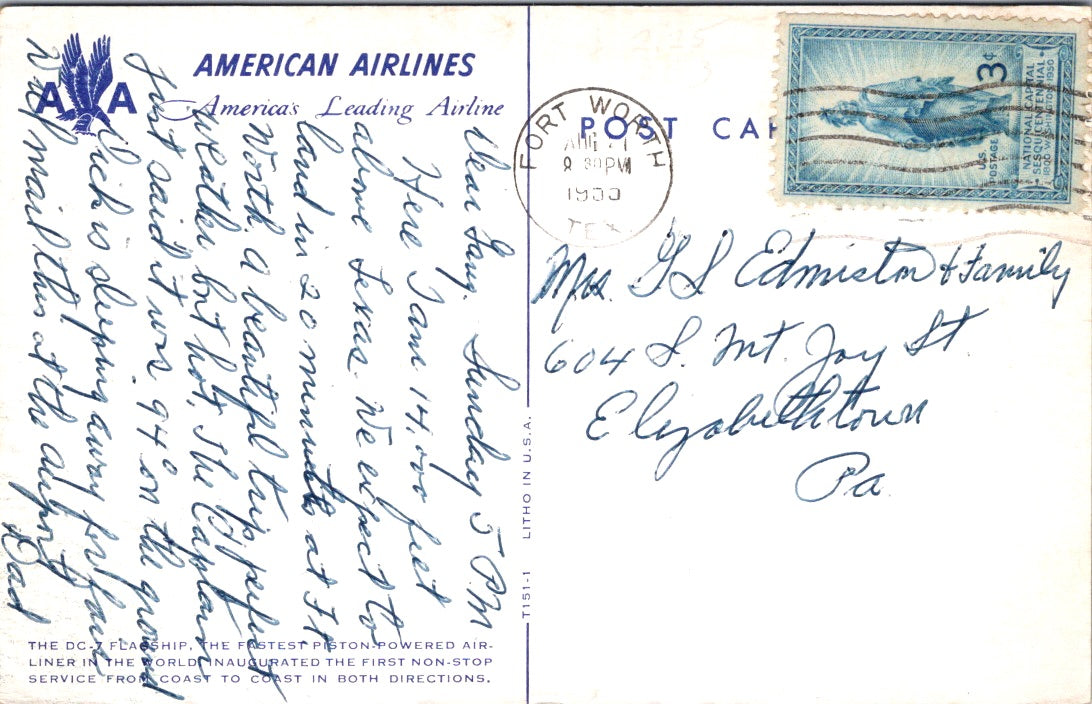 AMERICAN AIRLINES
America's Leading Airline
A A
POST CAR
FORT WORTH
AUG 21
8 30 PM
TEX
3¢
U.S. POSTAGE
NATIONAL CAPITAL
SESQUICENTENNIAL
1800 WASHINGTON 1950
Sunday 5 P.M
Dear Gang.
Here I am 14,000 feet
above Texas. We expect to
land in 20 minutes at Ft
Worth, a beautiful trip, perfect
weather but hot. The Captain
just said it was 94° on the ground
Dick is sleeping away for fair
Will mail this at the airport
Dad
Mrs. G S Edmiston & Family
604 S. Mt. Joy St
Elizabethtown
Pa.
T151-1 LITHO IN U.S.A.
THE DC-7 FLAGSHIP, THE FASTEST PISTON-POWERED AIR-
LINER IN THE WORLD, INAUGURATED THE FIRST NON-STOP
SERVICE FROM COAST TO COAST IN BOTH DIRECTIONS.